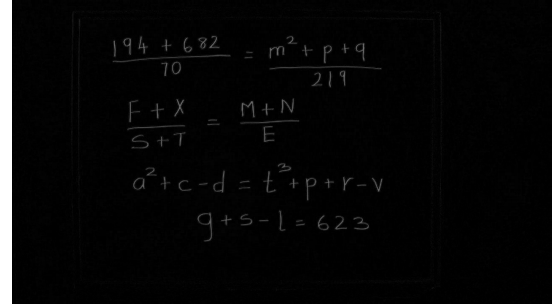 (194 + 682)/70 = (m² + p + q)/219
(F + X)/(S + T) = (M + N)/E
a² + c - d = t³ + p + r - v
g + s - l = 623